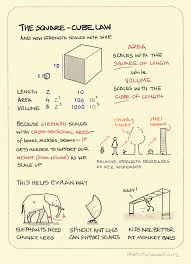 THE SQUARE-CUBE LAW
AND HOW STRENGTH SCALES WITH SIZE
AREA
SCALES WITH THE
SQUARE OF LENGTH
WHILE
VOLUME
SCALES WITH THE
CUBE OF LENGTH
LENGTH 2 10
AREA 4 2² 100 10²
VOLUME 8 2³ 1000 10³
BECAUSE STRENGTH SCALES
WITH CROSS-SECTIONAL AREA—
OF BONES, MUSCLES, BEAMS—
IT DOESN'T KEEP UP WITH
OUR WEIGHT (FROM VOLUME) AS WE
SCALE UP
chunky
trunks
steel
beams
RELATIVE STRENGTH DECREASES
AS SIZE INCREASES
THIS HELPS EXPLAIN WHY
EASY!
ELEPHANTS NEED
CHUNKY LEGS
SPINDLY ANT LEGS
CAN SUPPORT
KIDS ARE BETTER
AT MONKEY BARS